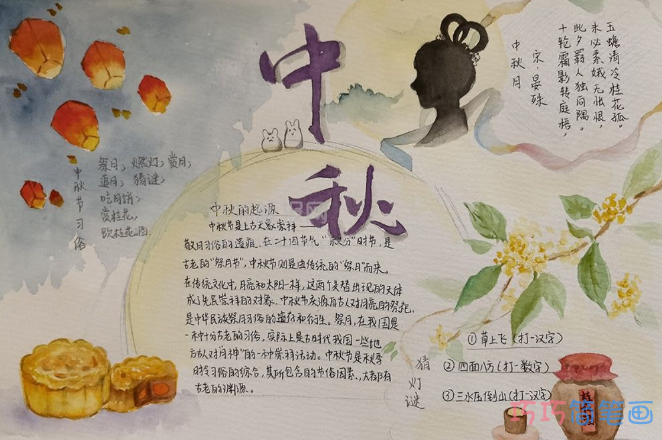 中
秋
中秋月
宋·晏殊
十轮霜影转庭梧，
此夕羁人独向隅。
未必素娥无怅恨，
玉蟾清冷桂花孤。
中秋节习俗
祭月，燃灯，赏月，
猜谜，
吃月饼，
赏桂花，
饮桂花酒
中秋的起源
中秋节是上古天象崇拜——
敬月习俗的遗痕。在二十四节气“秋分”时节，是
古老的“祭月节”，中秋节则是由传统的“祭月”而来。
在传统文化中，月亮和太阳一样，这两个交替出现的天体
成了先民崇拜的对象。中秋节源自古人对月亮的祭祀，
是中华民族祭月习俗的遗存和衍生。祭月，在我国是
一种十分古老的习俗，实际上是古时代我国一些地
方古人对“月神”的一种崇拜活动。中秋节是秋季
时令习俗的综合，其所包含的节俗因素，大都有
古老的渊源。
猜灯谜
①草上飞（打一汉字）
②四面八方（打一数字）
③三水压倒山（打一汉字）
巧巧简笔画